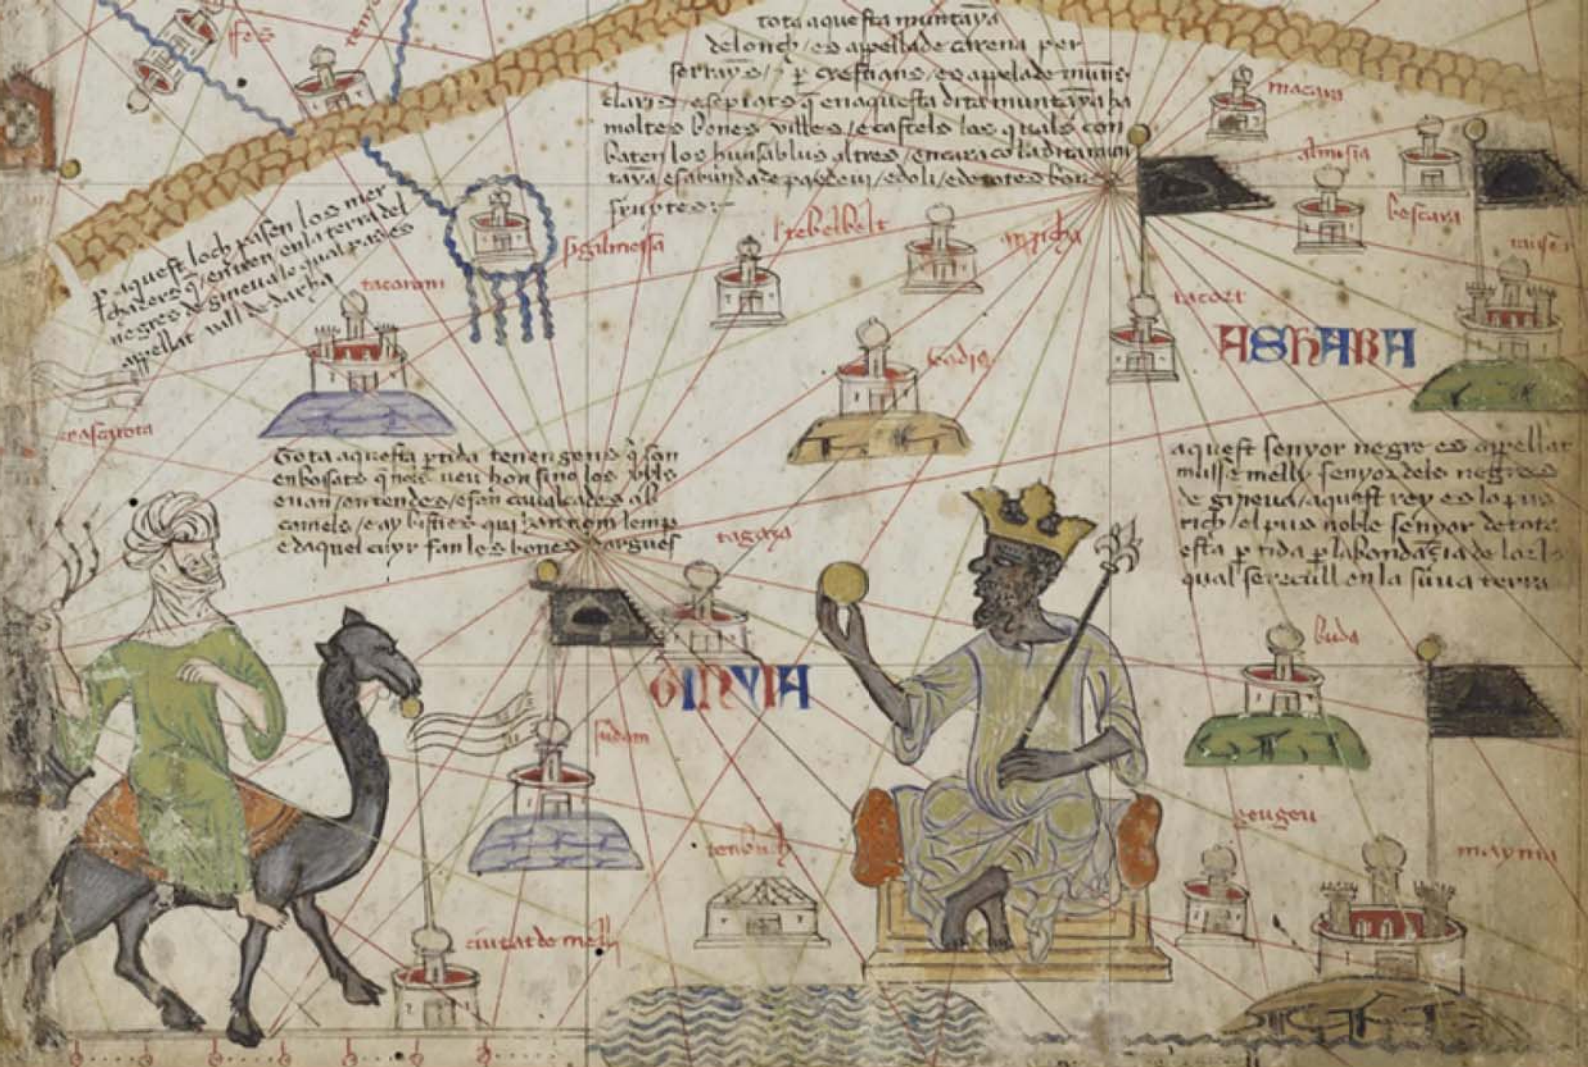 fes
tota aquesta muntaya
de lonch / es appellade carena per
serrayns / e per crestians / es appelade munts
claris / e sepiats q̄ en aquesta dita muntaya ha
moltes bones villes / e castels los quals con
baten los huns ab lus altres / encara co la dita mun
taya es abunda de pa e de vi / e d oli / e de totes bones
fruytes:~
macara
almisia
bescara
tebelbelt
sigilmessa
P̱ aquest loch pasen los mer
chaders q̄ / entren / en la terra del
negres de gineua lo qual pas es
appellat vall de darha
tacort
ASHARA
Tota aquesta ꝑtida tenen gens q̄ son
enbosats q̄ nols veu hon sino los uyls
e van / en tendes / e fan cavalcades ab
camels / e ay bisties qui han nom lemp
e daquel cuyr fan les bones dargues
aquest senyor negre es appellat
musse melly senyor dels negres
de gineva / aquest rey es lo pus
rich / el pus noble senyor de tota
esta ꝑtida ꝑ labondançia de lor lo
qual se recull en la suua terra
tagaza
GINYIA
buda
sudam
tenbuch
geugeu
mayma
ciutat de melly